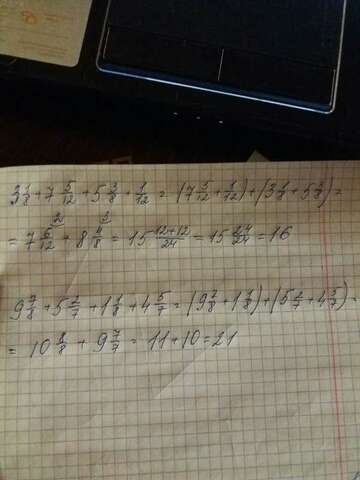 3 1/8 + 7 5/12 + 5 3/8 + 1/12 = (7 5/12 + 1/12) + (3 1/8 + 5 3/8) =
= 7 6/12 + 8 4/8 = 15 12+12/24 = 15 24/24 = 16
9 7/8 + 5 2/7 + 1 1/8 + 4 5/7 = (9 7/8 + 1 1/8) + (5 2/7 + 4 5/7) =
= 10 8/8 + 9 7/7 = 11 + 10 = 21